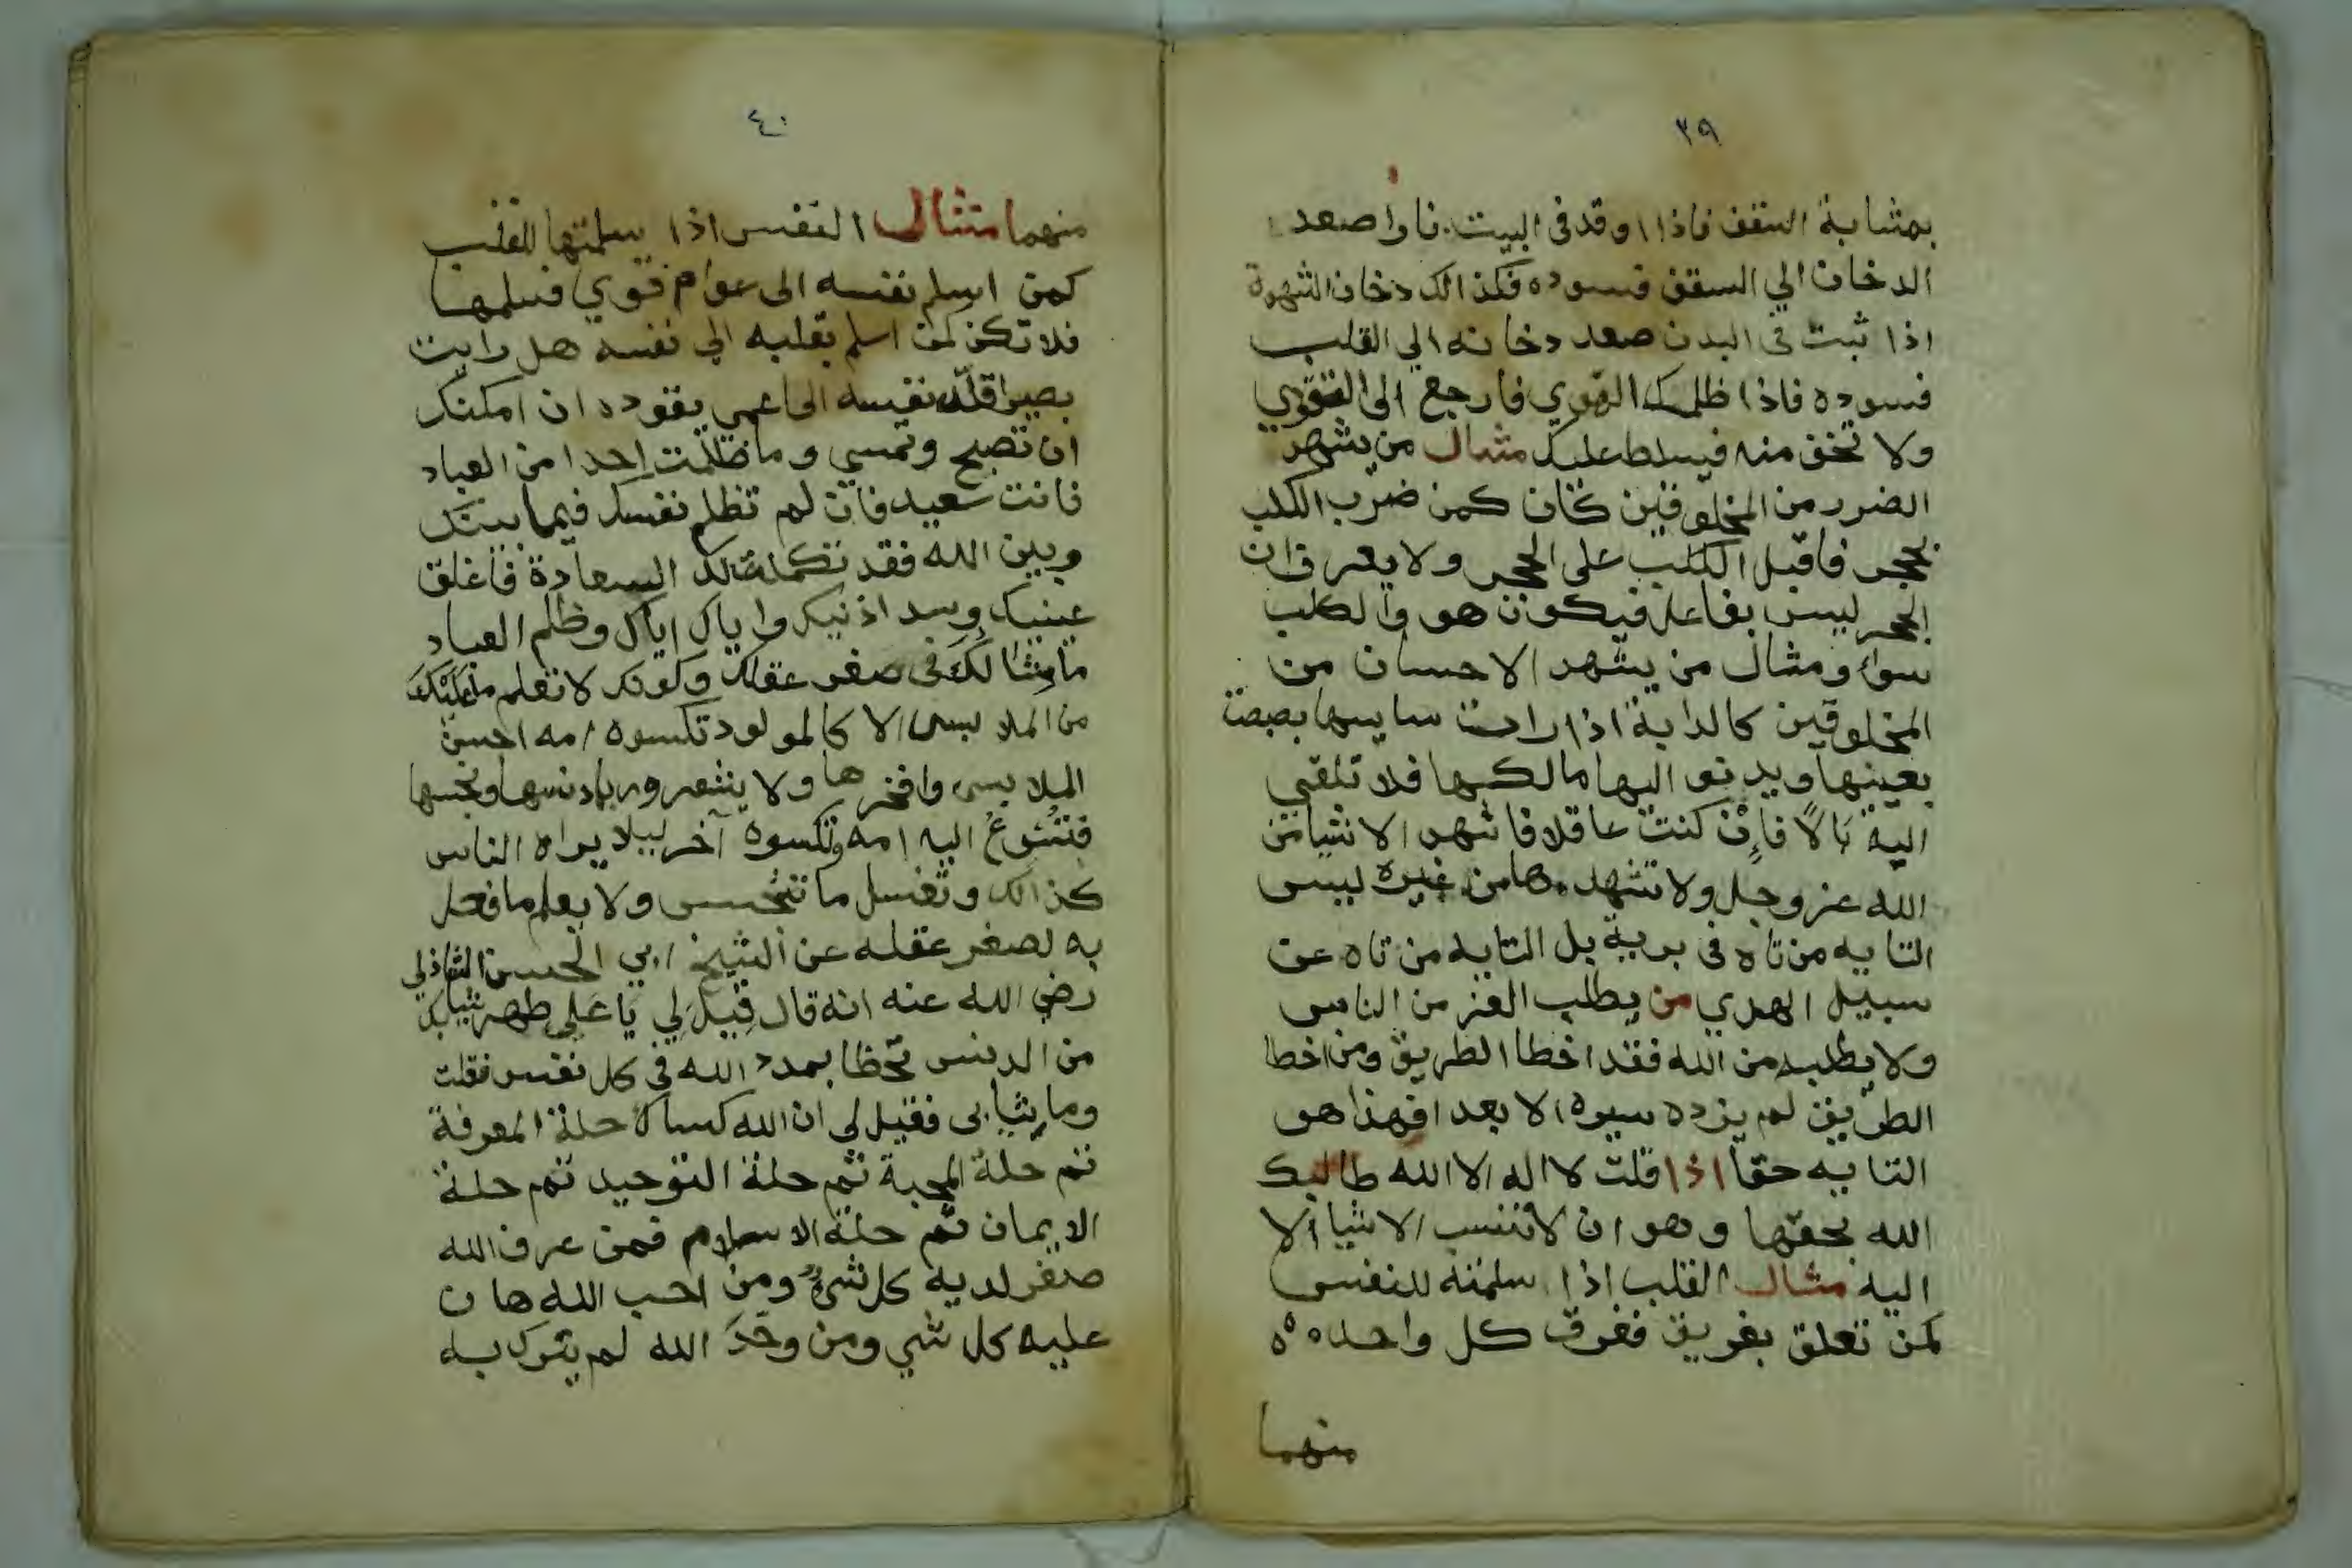 ٣٩
بمثابة السقف فاذا اوقد في البيت نارا صعد
الدخان الي السقف فسوده فكذالك دخان الشهوة
اذا ثبت في البدن صعد دخانه الي القلب
فسوده فاذا ظلمك القوي فارجع الى القوي
ولا تخف منه فيسلط عليك مثال من يشهد
الضرر من المخلوقين كان كمن ضرب الكلب
بحجر فاقبل الكلب على الحجر ولا يعرف ان
الحجر ليس بفاعل فيكون هو والكلب
سواء ومثال من يشهد الاحسان من
المخلوقين كالدابة اذا رات سايسها بصبصت
بعينها ويدنو اليها مالكها فلا تلقي
اليه بَالاً فاِنْ كنت عاقلا فاشهد الاشيا من
الله عز وجل ولا تشهدها من غيره ليس
التايه من تاه في برية بل التايه من تاه عن
سبيل الهدي من يطلب العز من الناس
ولا يطلبه من الله فقد اخطا الطريق ومن اخطا
الطريق لم يزده سيره الا بعدا فهذا هو
التايه حقا اذا قلت لا اله الا الله طالبك
الله بحقها وهو ان لا تنسب الاشيا الا
اليه مثال القلب اذا سلمته للنفس
كمن تعلق بغريق فغرق كل واحد ه ه
منهما
٤٠
منهما مثال النفس اذا سلمتها للقلب
كمن اسلم نفسه الى عوام قوي فسلمها
فلا تكن كمن اسلم بقلبه الي نفسه هل رايت
بصيرا قلّد نفسه الى اعمي يقوده ان امكنك
ان تصبح وتمسي وما ظلمت احدا من العباد
فانت سعيد فان لم تظلم نفسك فيما بينك
وبين الله فقد تكملت لك السعادة فاغلق
عينيك وسد اذنيك واياك اياك وظلم العباد
ما مِثالكَ في صغر عقلك وكونك لا تعلم ما عَلَيْكَ
من الملابس الا كالمولود تكسوه امه احسن
الملابس وافخرها ولا يشعر وربما دنسها ونجسها
فتُسْرِعُ اليه امه وتكسوه آخر ليلا يراه الناس
كذالك وتغسل ما تنجس ولا يعلم ما فعل
به لصغر عقله عن الشيخ ابي الحسن الشاذلي
رضي الله عنه انه قال قِيلَ لِي يَا عَلي طهر ثيابك
من الدنس تحظا بمدد الله في كل نفس فقلت
وما ثيابي فقيل لي ان الله كساك حلة المعرفة
ثم حلة المحبة ثم حلة التوحيد ثم حلة
الايمان ثم حلة الاسلام فمن عرف الله
صغر لديه كل شيء ومن احب الله هان
عليه كل شي ومن وحّدَ الله لم يشرك به